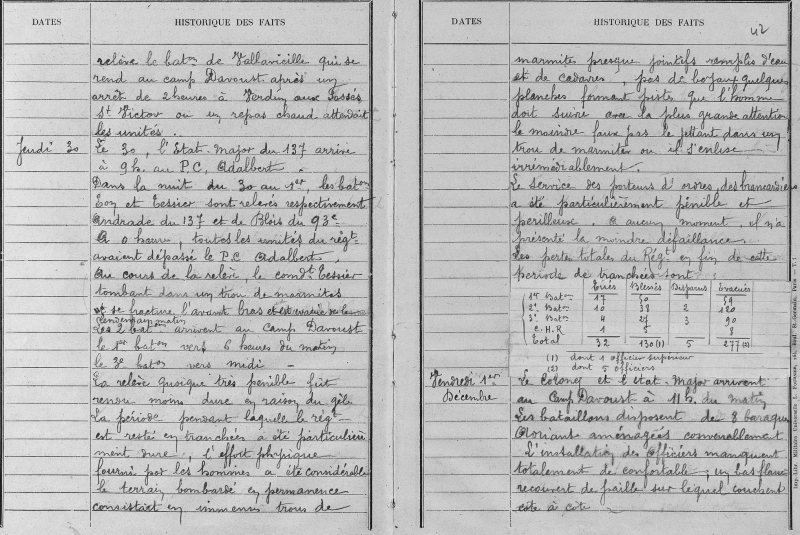 DATES
HISTORIQUE DES FAITS
relève le bat.on de Vallavieille qui se
rend au camp Davoust après un
arrêt de 2 heures à Verdun aux Fossés
St Victor ou un repas chaud attendait
les unités.
Jeudi 30
Le 30, l'Etat-Major du 137 arrive
à 9h. au P.C. Adalbert.
Dans la nuit du 30 au 1er, les bat.ons
et Tessier sont relevés respectivement
Andrade du 137 et de Blois du 93e
A 0 heure, toutes les unités du régt
avaient dépassé le P.C. Adalbert.
Au cours de la relève, le comdt Tessier
tombant dans un trou de marmites
se fracture l'avant bras et est évacué
lendemain matin
Les 2 bat.ons arrivent au Camp Davoust
le 1er baton vers 6 heures du matin
le 3e baton vers midi -
La relève quoique très pénible fut
rendue moins dure en raison du gel.
La période pendant laquelle le régt
est resté en tranchées a été particulière
ment dure, l'effort physique
fourni par les hommes a été considérable
le terrain bombardé en permanence
consistait en immenses trous de
DATES
HISTORIQUE DES FAITS
42
marmites presque jointifs remplis d'eau
et de cadavres, pas de boyaux quelques
planches formant piste que l'homme
doit suivre avec la plus grande attention
le moindre faux pas le jettant dans un
trou de marmites ou il s'enlise
irrémédiablement.
Le service des porteurs d'ordres, des brancardiers
a été particulièrement pénible et
perilleux. A aucun moment, il n'a
présenté la moindre défaillance.
Les pertes totales du Régt en fin de cette
periode de tranchées sont :
Tués Blessés Disparus Evacués
1er Baton 17 50 59
2e Baton 10 38 2 120
3e Baton 4 27 3 90
C.H.R 1 5 8
Total 32 130(1) 5 277(2)
(1) dont 1 officier supérieur
(2) dont 5 officiers
Vendredi 1er
Décembre
Le Colonel et l'état-Major arrivent
au Camp Davoust à 11h. du matin
Les bataillons disposent de 8 baraques
Adriant aménagées convenablement
L'installation des Officiers manquent
totalement de confortable ; un bas flanc
recouvert de paille sur lequel couchent
côte à côte